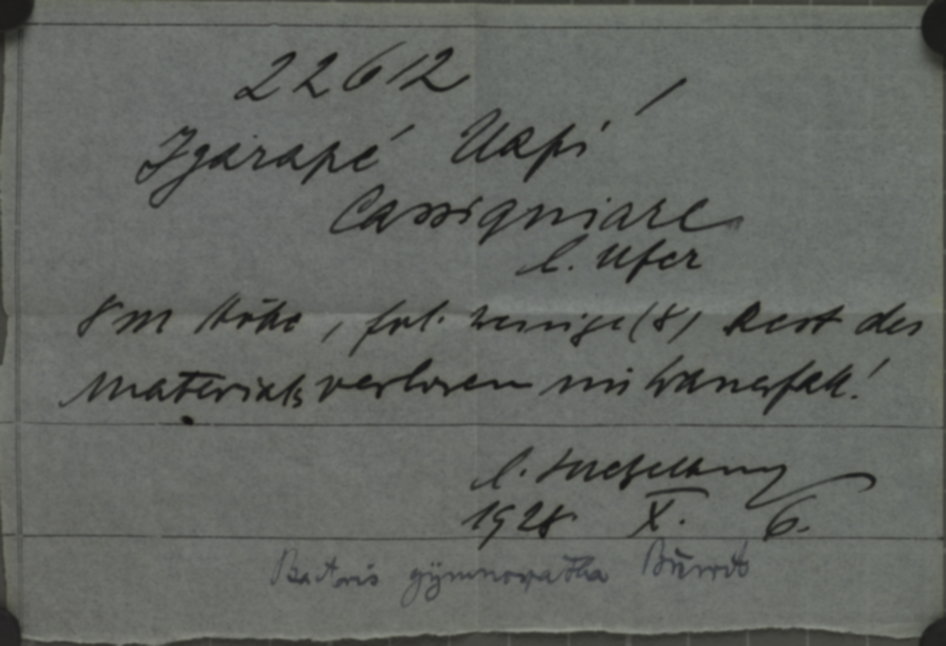 22612
Igarapé Uapí
Cassiquiare
l. Ufer
8 m Höhe, fol. wenige (8) Rest des
Materials verloren im Wasserfall!
1928 X. 6.
Bactris gymnospatha Burret